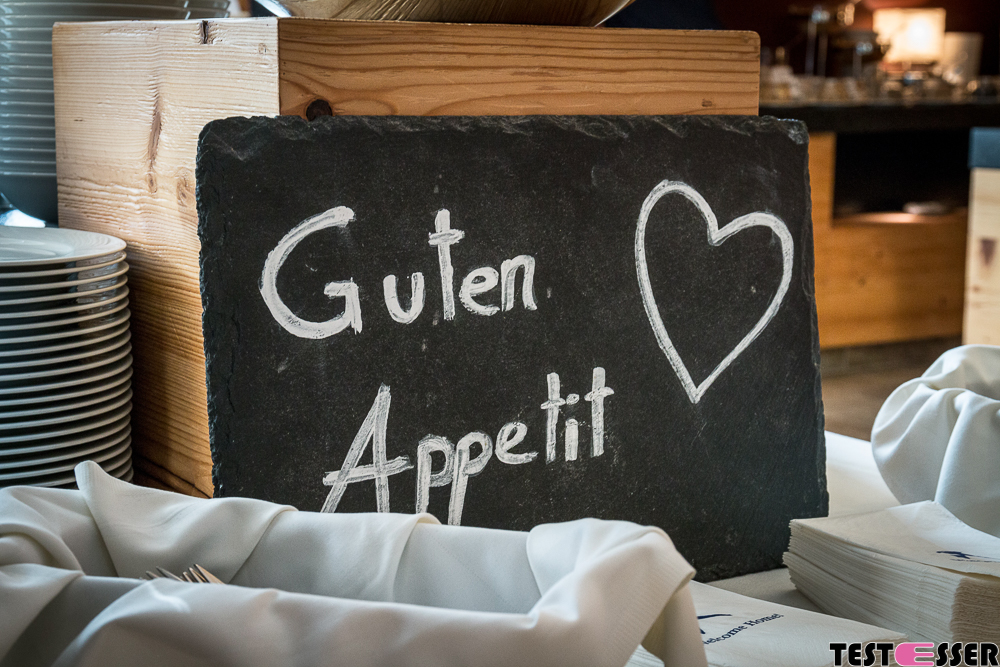 Guten
Appetit
Welcome Home!
TESTESSER